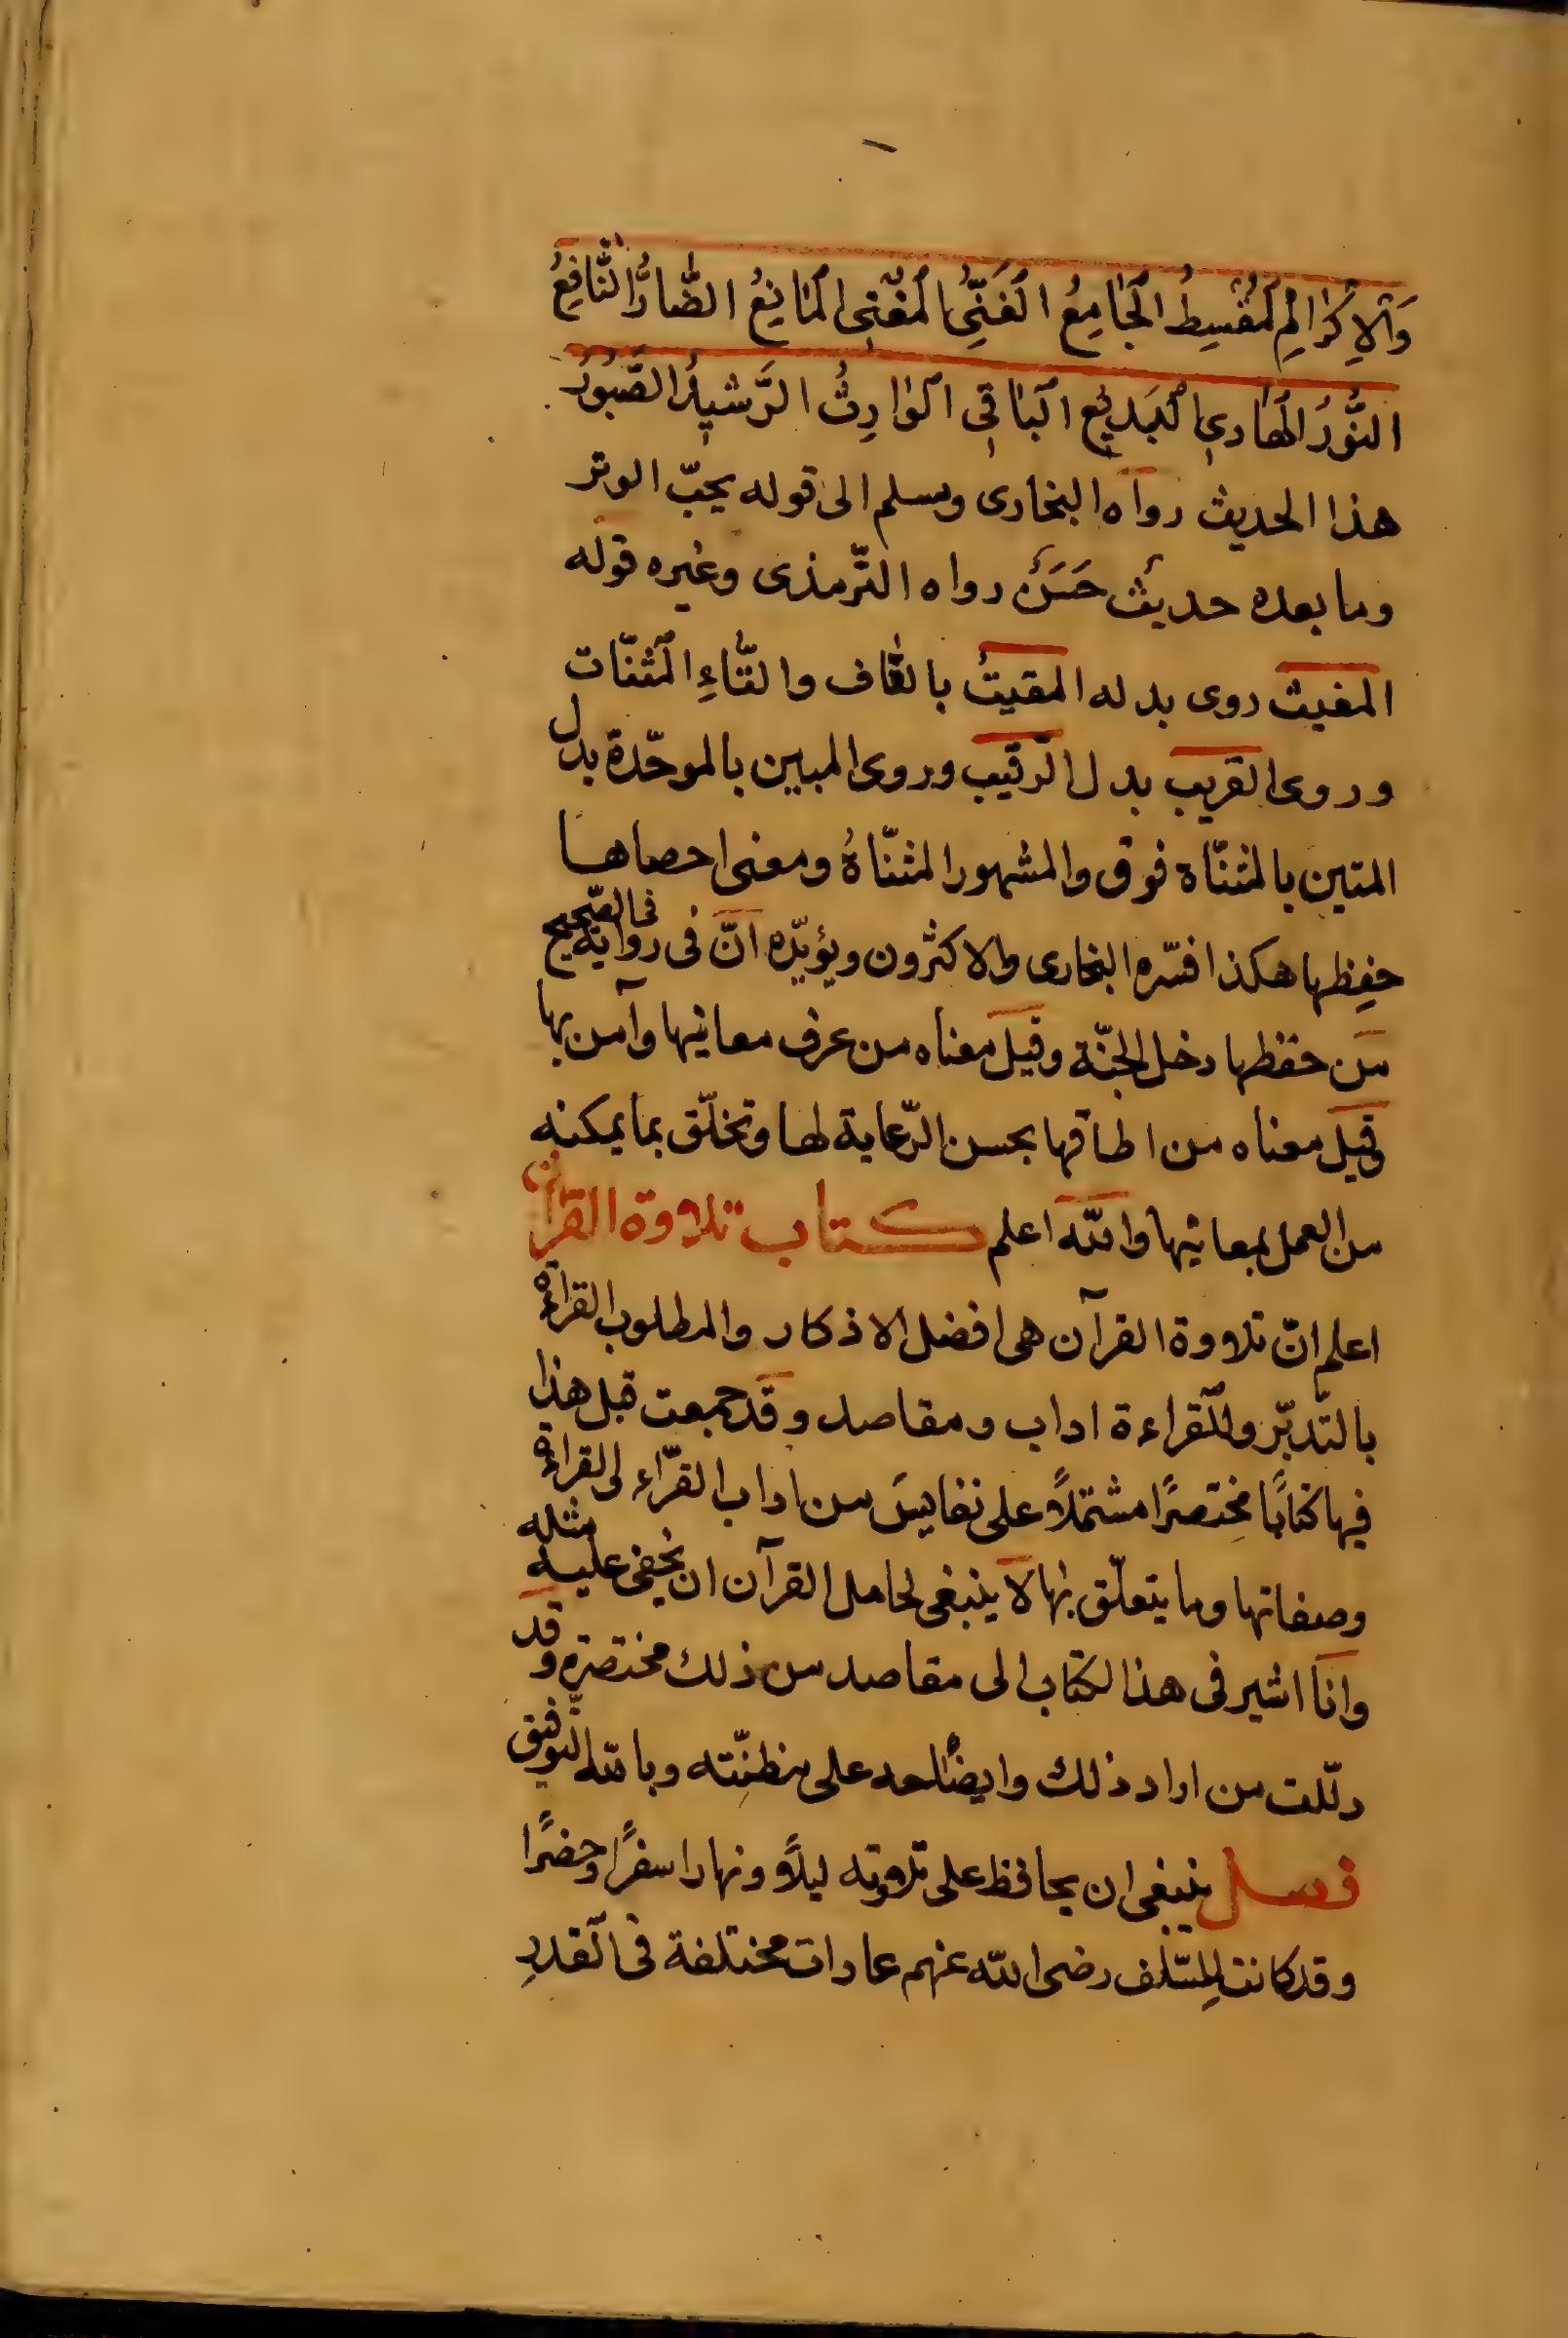 وَالْاِكْرَامِ الْمُقْسِطُ الْجَامِعُ الْغَنِيُّ الْمُغْنِى الْمَانِعُ الضَّارُّ النَّافِعُ
النُّورُ الْهَادِي الْبَدِيعُ الْبَاقِي الْوَارِثُ الرَّشِيدُ الصَّبُورُ
هذا الحديث رواه البخارى ومسلم الى قوله يحبّ الوتر
وما بعده حديث حَسَنٌ رواه التّرمذى وغيره قوله
المغيث روى بدله المقيتُ بالقاف والتّاءِ المثنّات
وروى القريب بدل الرّقيب وروى المبين بالموحّدة بدل
المتين بالمثنّاة فوق والمشهور المثنّاةُ ومعنى احصاها
حفِظها هكذا فسّره البخارى والاكثرون ويؤيّده انّ فى رواية فى الصّحيح
مَن حفظها دخل الجنّة وقيل معناه من عرف معانيها وآمن بها
وقيل معناه من اطاقها بحسن الرّعاية لها وتخلّق بما يمكنه
من العمل بمعانيها والله اعلم كتاب تلاوة القرآن
اعلم انّ تلاوة القرآن هى افضل الاذكار والمطلوب القراءة
بالتّدبّر وللقراءة اداب ومقاصد وقد جمعت قبل هذا
فيها كتابًا مختصرًا مشتملاً على نفايسَ من اداب القرّاء والقراءة
وصفاتها وما يتعلّق بها لا ينبغى لحامل القرآن ان يُخفى عليه مثله
وانا اشير فى هذا لكتاب الى مقاصد من ذلك مختصرة وقد
دلّلت من اراد ذلك وايضاحه على مظنّته وبالله التّوفيق
فصل ينبغى ان يحافظ على تلاوته ليلاً ونهارا سفرًا وحضرًا
وقد كانت للِسّلف رضى الله عنهم عادات مختلفة فى القدرِ